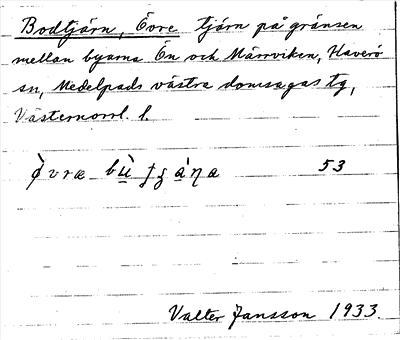 Bodtjärn, Övre tjärn på gränsen
mellan byarna Ön och Märrviken, Haverö
sn, Medelpads västra domsagas tg,
Västernorrl. l.
53
Valter Jansson 1933.